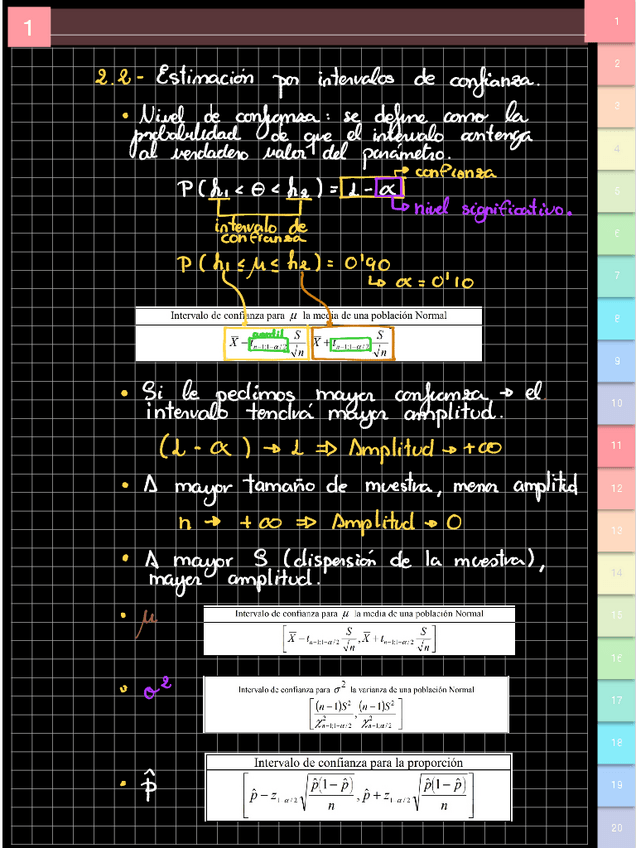 1
2.2- Estimación por intervalos de confianza.
• Nivel de confianza: se define como la
probabilidad de que el intervalo contenga
al verdadero valor del parámetro.
→ confianza
P(h₁ < θ < h₂) = 1-α
↳ nivel significativo.
intervalo de
confianza
P(h₁ ≤ μ ≤ h₂) = 0'90
↳ α = 0'10
Intervalo de confianza para μ la media de una población Normal
X̄ - t_{n-1;1-α/2} S/√n, X̄ + t_{n-1;1-α/2} S/√n
• Si le pedimos mayor confianza → el
intervalo tendrá mayor amplitud.
(1 - α) → 1 ⇒ Amplitud → +∞
• A mayor tamaño de muestra, menor amplitud
n → +∞ ⇒ Amplitud → 0
• A mayor S (dispersión de la muestra),
mayor amplitud.
• μ
Intervalo de confianza para μ la media de una población Normal
[X̄ - t_{n-1;1-α/2} S/√n, X̄ + t_{n-1;1-α/2} S/√n]
• σ²
Intervalo de confianza para σ² la varianza de una población Normal
[(n-1)S²/χ²_{n-1;1-α/2}, (n-1)S²/χ²_{n-1;α/2}]
• p̂
Intervalo de confianza para la proporción
[p̂ - z_{1-α/2} √(p̂(1-p̂)/n), p̂ + z_{1-α/2} √(p̂(1-p̂)/n)]
1
2
3
4
5
6
7
8
9
10
11
12
13
14
15
16
17
18
19
20